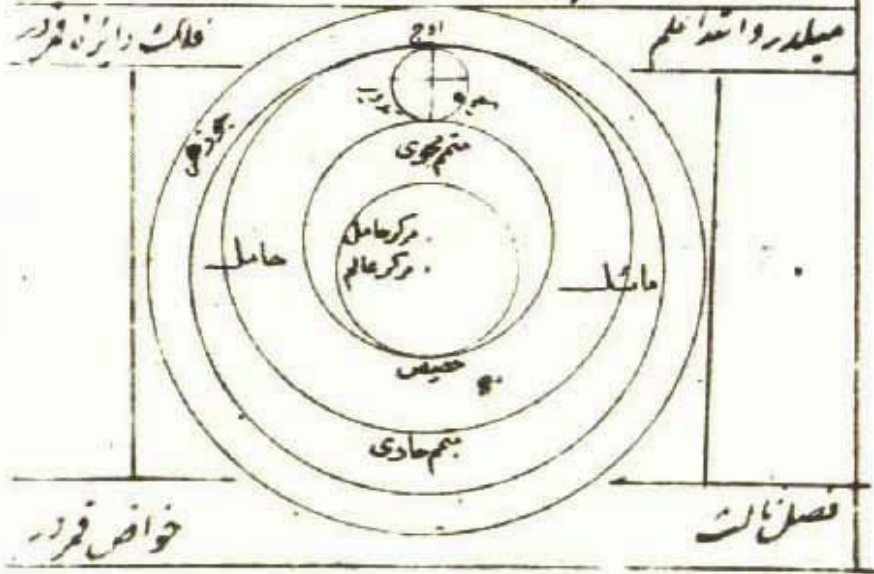 میلدر و ابتدا علم
فلك دایره قمردر
اوج
تدویر
جوزهر
متمم محوی
مركز حامل
مركز عالم
حامل
مائل
حضیض
متمم حاوی
فصل ثالث
خواص قمردر